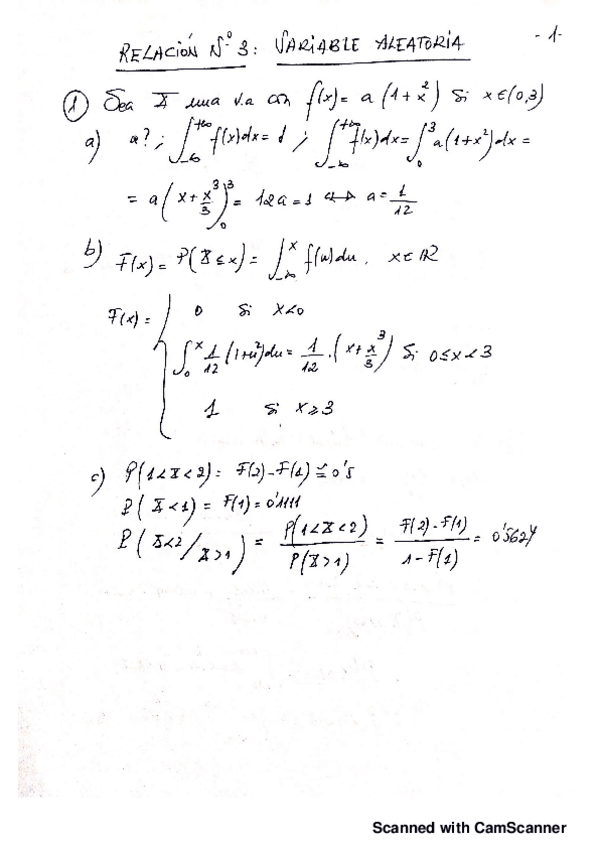 RELACIÓN Nº 3: VARIABLE ALEATORIA -1-
① Sea X una v.a con f(x) = a (1+x²) si x∈(0,3)
a) a? ; ∫_{-∞}^{+∞} f(x)dx = 1 ; ∫_{-∞}^{+∞} f(x)dx = ∫_0^3 a(1+x²)dx =
= a (x + x³/3)_0^3 = 12a = 1 ⟺ a = 1/12
b) F(x) = P(X ≤ x) = ∫_{-∞}^x f(u)du, x∈ℝ
F(x) = { 0 si x<0
∫_0^x 1/12 (1+u²)du = 1/12 · (x + x³/3) si 0≤x<3
1 si x≥3
c) P(1<X<2) = F(2)-F(1) ≅ 0'5
P(X<1) = F(1) = 0'1111
P(X<2 / X>1) = P(1<X<2) / P(X>1) = F(2)-F(1) / 1-F(1) = 0'5624
Scanned with CamScanner